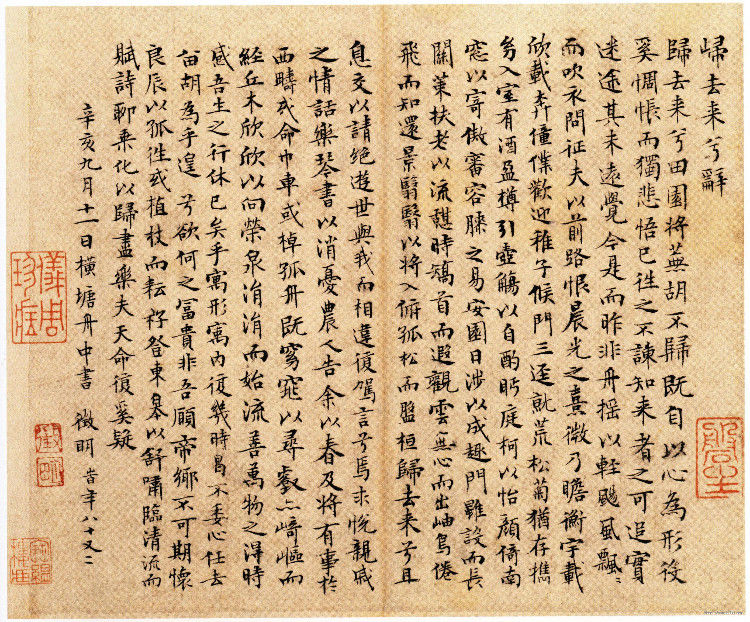 歸去来兮辭
歸去来兮田園將蕪胡不歸既自以心為形役
奚惆悵而獨悲悟已往之不諫知来者之可追實
迷途其未遠覺今是而昨非舟摇以輕颺風飄〻
而吹衣問征夫以前路恨晨光之熹微乃瞻衡宇載
欣載奔僮僕歡迎稚子候門三逕就荒松菊猶存攜
幼入室有酒盈樽引壺觴以自酌眄庭柯以怡顔倚南
窓以寄傲審容膝之易安園日涉以成趣門雖設而長
關策扶老以流憇時矯首而遐觀雲無心而出岫鳥倦
飛而知還景翳翳以將入俯孤松而盤桓歸去来兮且
息交以請絶遊世與我而相違復駕言兮焉求悦親戚
之情話樂琴書以消憂農人告余以春及將有事於
西疇或命巾車或棹孤舟既窈窕以尋壑亦崎嶇而
經丘木欣欣以向榮泉涓涓而始流善萬物之得時
感吾生之行休已矣乎寓形寓內復幾時曷不委心任去
留胡為乎遑兮欲何之富貴非吾願帝鄉不可期懷
良辰以孤往或植杖而耘耔登東皋以舒嘯臨清流而
賦詩聊乘化以歸盡樂夫天命復奚疑
辛亥九月十一日橫塘舟中書 徵明 時年八十又二
儀周珍藏
徵明